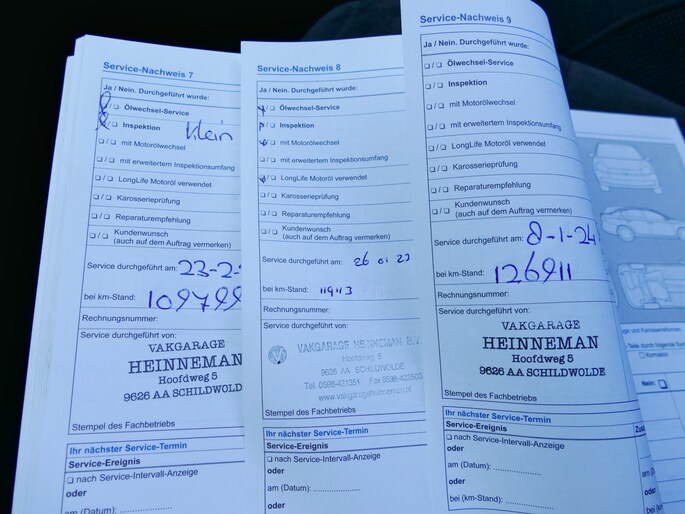 Service-Nachweis 7
Ja / Nein. Durchgeführt wurde:
Ölwechsel-Service
Inspektion klein
mit Motorölwechsel
mit erweitertem Inspektionsumfang
LongLife Motoröl verwendet
Karosserieprüfung
Reparaturempfehlung
Kundenwunsch
(auch auf dem Auftrag vermerken)
Service durchgeführt am: 23-2-
bei km-Stand: 109799
Rechnungsnummer:
Service durchgeführt von:
VAKGARAGE
HEINNEMAN
Hoofdweg 5
9626 AA SCHILDWOLD
Stempel des Fachbetriebs
Ihr nächster Service-Termin
Service-Ereignis
nach Service-Intervall-Anzeige
oder
am (Datum):
Service-Nachweis 8
Ja / Nein. Durchgeführt wurde:
Ölwechsel-Service
Inspektion
mit Motorölwechsel
mit erweitertem Inspektionsumfang
LongLife Motoröl verwendet
Karosserieprüfung
Reparaturempfehlung
Kundenwunsch
(auch auf dem Auftrag vermerken)
Service durchgeführt am: 26 01 23
bei km-Stand:
Rechnungsnummer:
Service durchgeführt von:
VAKGARAGE HEINNEMAN B.V.
Hoofdweg 5
9626 AA SCHILDWOLDE
Tel. 0598-421351 Fax 0598-422503
www.vakgarageheinneman.nl
Stempel des Fachbetriebs
Ihr nächster Service-Termin
Service-Ereignis
nach Service-Intervall-Anzeige
oder
am (Datum):
oder
Service-Nachweis 9
Ja / Nein. Durchgeführt wurde:
Ölwechsel-Service
Inspektion
mit Motorölwechsel
mit erweitertem Inspektionsumfang
LongLife Motoröl verwendet
Karosserieprüfung
Reparaturempfehlung
Kundenwunsch
(auch auf dem Auftrag vermerken)
Service durchgeführt am: 8-1-24
bei km-Stand: 126911
Rechnungsnummer:
Service durchgeführt von:
VAKGARAGE
HEINNEMAN
Hoofdweg 5
9626 AA SCHILDWOLDE
Stempel des Fachbetriebs
Ihr nächster Service-Termin
Service-Ereignis
nach Service-Intervall-Anzeige
oder
am (Datum):
oder
bei (km-Stand):
Nein: